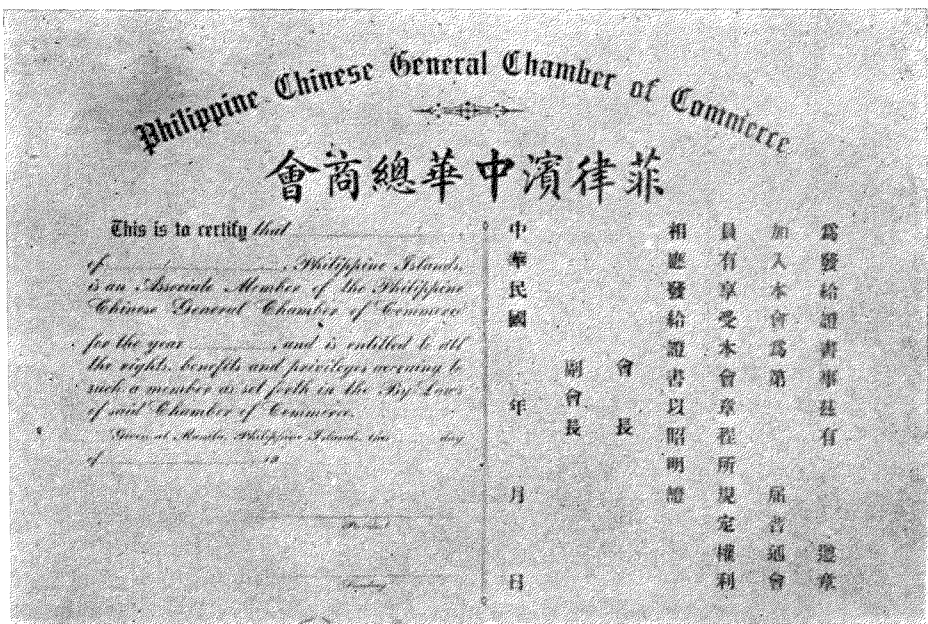 Philippine Chinese General Chamber of Commerce
會商總華中濱律菲
This is to certify that
of , Philippine Islands,
is an Associate Member of the Philippine
Chinese General Chamber of Commerce
for the year , and is entitled to all
the rights, benefits and privileges accruing to
such a member as set forth in the By-Laws
of said Chamber of Commerce.
Given at Manila, Philippine Islands, this day
of , 19
President
Secretary
為發給證書事茲有 遵章
加入本會為第 屆普通會
員有享受本會章程所規定權利
相應發給證書以昭明證
會長
副會長
中華民國 年 月 日